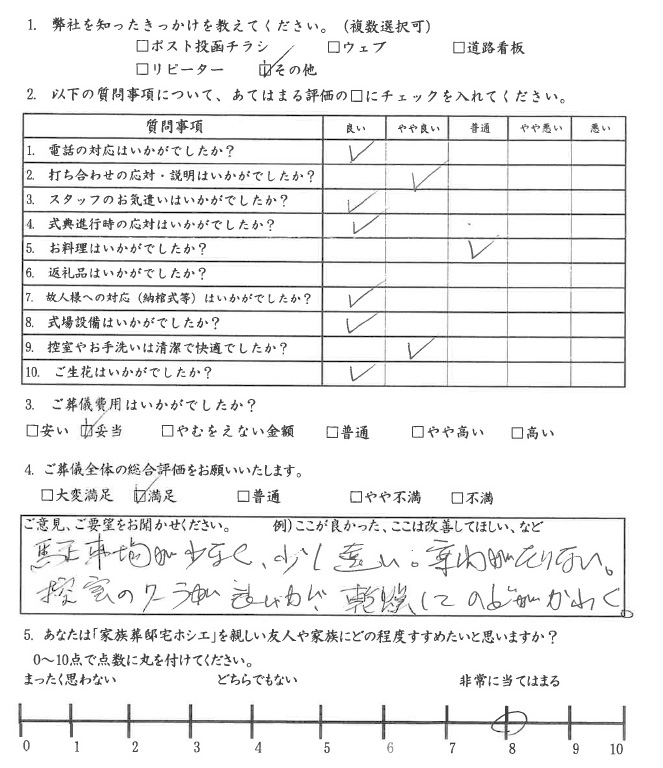 1. 弊社を知ったきっかけを教えてください。（複数選択可）
□ポスト投函チラシ □ウェブ □道路看板
□リピーター ☑その他
2. 以下の質問事項について、あてはまる評価の□にチェックを入れてください。
質問事項 良い やや良い 普通 やや悪い 悪い
1. 電話の対応はいかがでしたか？ ✓
2. 打ち合わせの応対・説明はいかがでしたか？ ✓
3. スタッフのお気遣いはいかがでしたか？ ✓
4. 式典進行時の応対はいかがでしたか？ ✓
5. お料理はいかがでしたか？ ✓
6. 返礼品はいかがでしたか？
7. 故人様への対応（納棺式等）はいかがでしたか？ ✓
8. 式場設備はいかがでしたか？ ✓
9. 控室やお手洗いは清潔で快適でしたか？ ✓
10. ご生花はいかがでしたか？ ✓
3. ご葬儀費用はいかがでしたか？
□安い ☑妥当 □やむをえない金額 □普通 □やや高い □高い
4. ご葬儀全体の総合評価をお願いいたします。
□大変満足 ☑満足 □普通 □やや不満 □不満
ご意見、ご要望をお聞かせください。 例）ここが良かった、ここは改善してほしい、など
駐車場が少なく、少し遠い。案内が足りない。
控室のクーラーが、乾燥してのどがかわく。
5. あなたは「家族葬邸宅ホシエ」を親しい友人や家族にどの程度すすめたいと思いますか？
0～10点で点数に丸を付けてください。
まったく思わない どちらでもない 非常に当てはまる
0 1 2 3 4 5 6 7 8 9 10